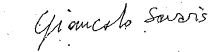 Giancarlo Savaris